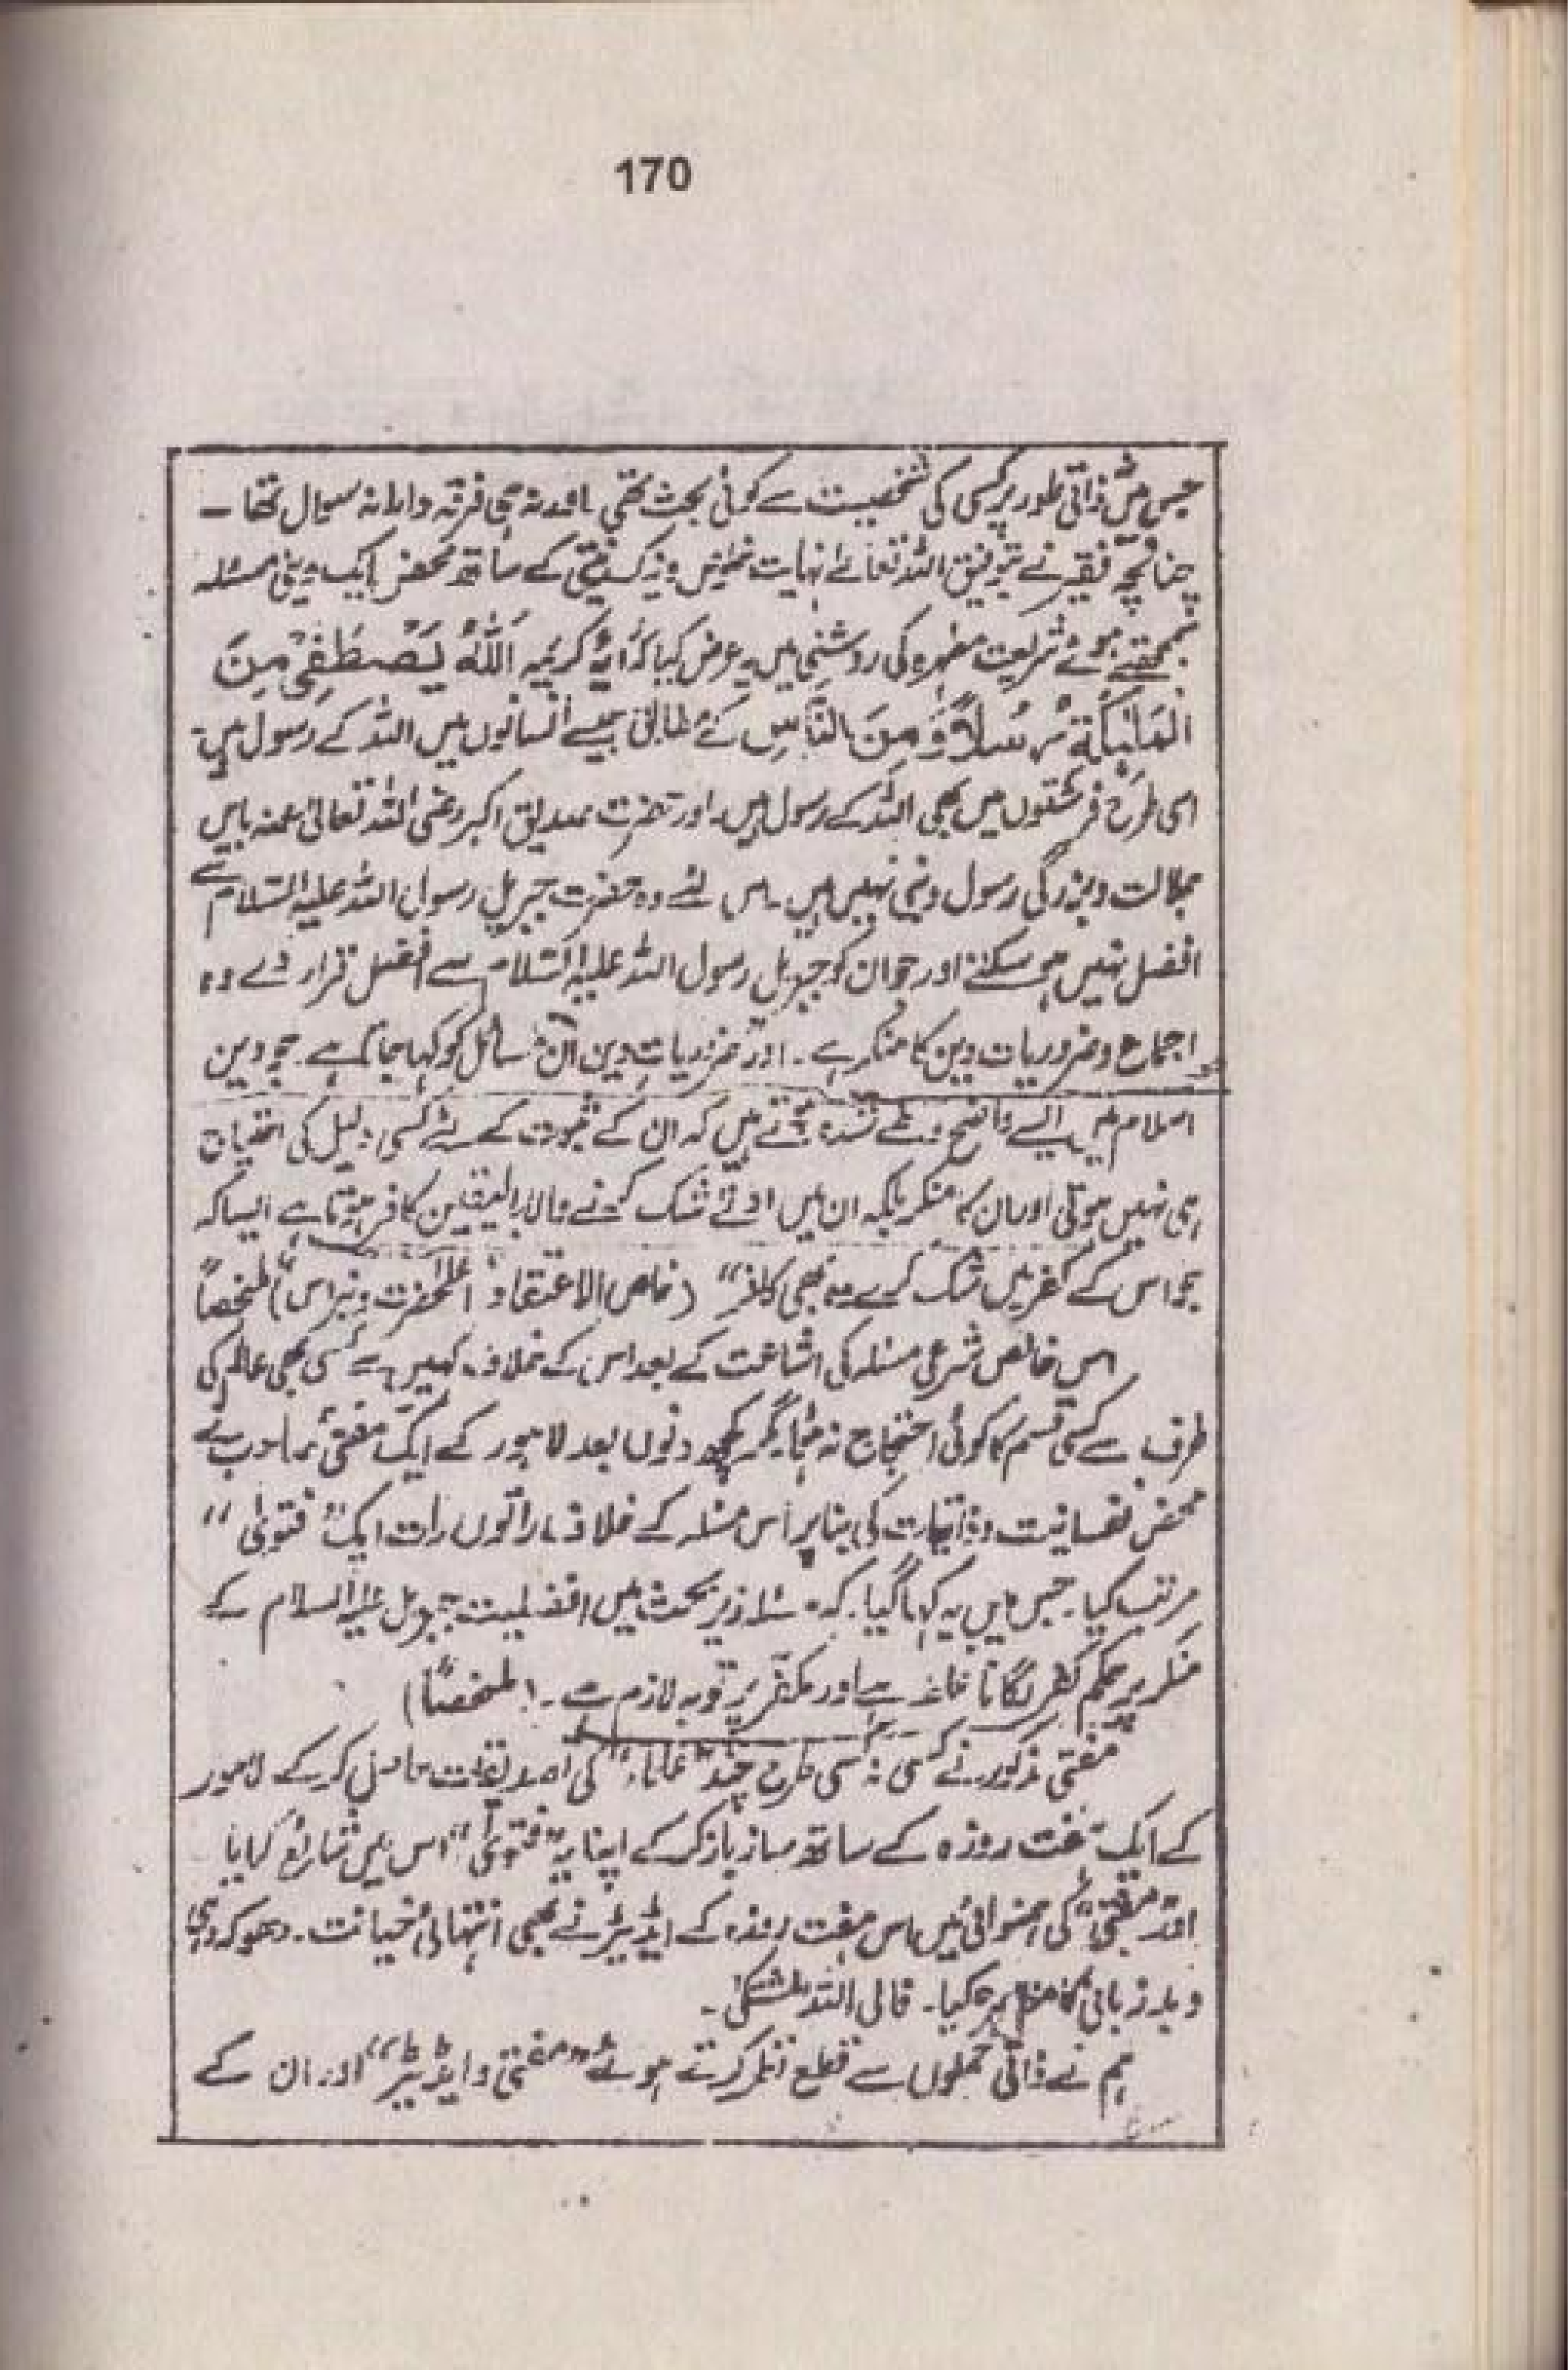 170
جس میں ذاتی طور پر کسی کی شخصیت سے کوئی بحث تھی اور نہ ہی فرقہ وارانہ سوال تھا ـ
چنانچہ فقیر نے بتوفیق اللہ تعالےٰ نہایت خلوص و نیک نیتی کے ساتھ محض ایک دینی مسئلہ
سمجھتے ہوئے شریعت مطہرہ کی روشنی میں یہ عرض کیا کہ آیہ کریمہ اَللّٰهُ يَصْطَفِيْ مِنَ
الْمَلٰٓئِكَةِ رُسُلًا وَّمِنَ النَّاسِ کے مطابق جیسے انسانوں میں اللہ کے رسول ہیں
اسی طرح فرشتوں میں بھی اللہ کے رسول ہیں۔ اور حضرت صدیق اکبر رضی اللہ تعالیٰ عنہ بایں
جلالت و بزرگی رسول و نبی نہیں ہیں۔ اس لئے وہ حضرت جبریل رسول اللہ علیہ السّلام سے
افضل نہیں ہو سکتے اور جو ان کو جبریل رسول اللہ علیہ السّلام سے افضل قرار دے وہ
اجماع و ضروریات دین کا منکر ہے۔ اور ضروریات دین ان مسائل کو کہا جاتا ہے۔ جو دین
اسلام میں ایسے واضح و طے شدہ ہوتے ہیں کہ ان کے ثبوت کے لئے کسی دلیل کی احتیاج
ہی نہیں ہوتی اور ان کا منکر بلکہ ان میں ادنےٰ شک کرنے والا بالیقین کافر ہوتا ہے ایسا کہ
جو اس کے کفر میں شک کرے وہ بھی کافر“ (خالص الاعتقاد اعلحضرت و نبراس) ملخصاً
اس خالص شرعی مسئلہ کی اشاعت کے بعد اس کے خلاف کہیں سے کسی بھی عالم کی
طرف سے کسی قسم کا کوئی احتجاج نہ ہوا۔ مگر کچھ دنوں بعد لاہور کے ایک مفتی صاحب نے
محض نفسانیت و ذاتیات کی بنا پر اس مسئلہ کے خلاف راتوں رات ایک ”فتویٰ“
مرتب کیا۔ جس میں یہ کہا گیا۔ کہ مسئلہ زیر بحث میں افضلیت جبریل علیہ السلام کے
منکر پر حکم کفر لگانا غلط ہے اور مکفّر پر توبہ لازم ہے۔ (ملخصاً)
مفتی مذکور نے کسی نہ کسی طرح چند ”علماء“ کی تصدیقات حاصل کر کے لاہور
کے ایک ہفت روزہ کے ساتھ ساز باز کر کے اپنا یہ ”فتویٰ“ اس میں شائع کرایا
اور ”مفتی“ کی ہمنوائی میں اس ہفت روزہ کے ایڈیٹر نے بھی انتہائی خیانت۔ دھوکہ دہی
و بد زبانی کا مظاہرہ کیا۔ فالی اللہ المشتکیٰ۔
ہم نے ذاتی حملوں سے قطع نظر کرتے ہوئے ”مفتی و ایڈیٹر“ اور ان کے